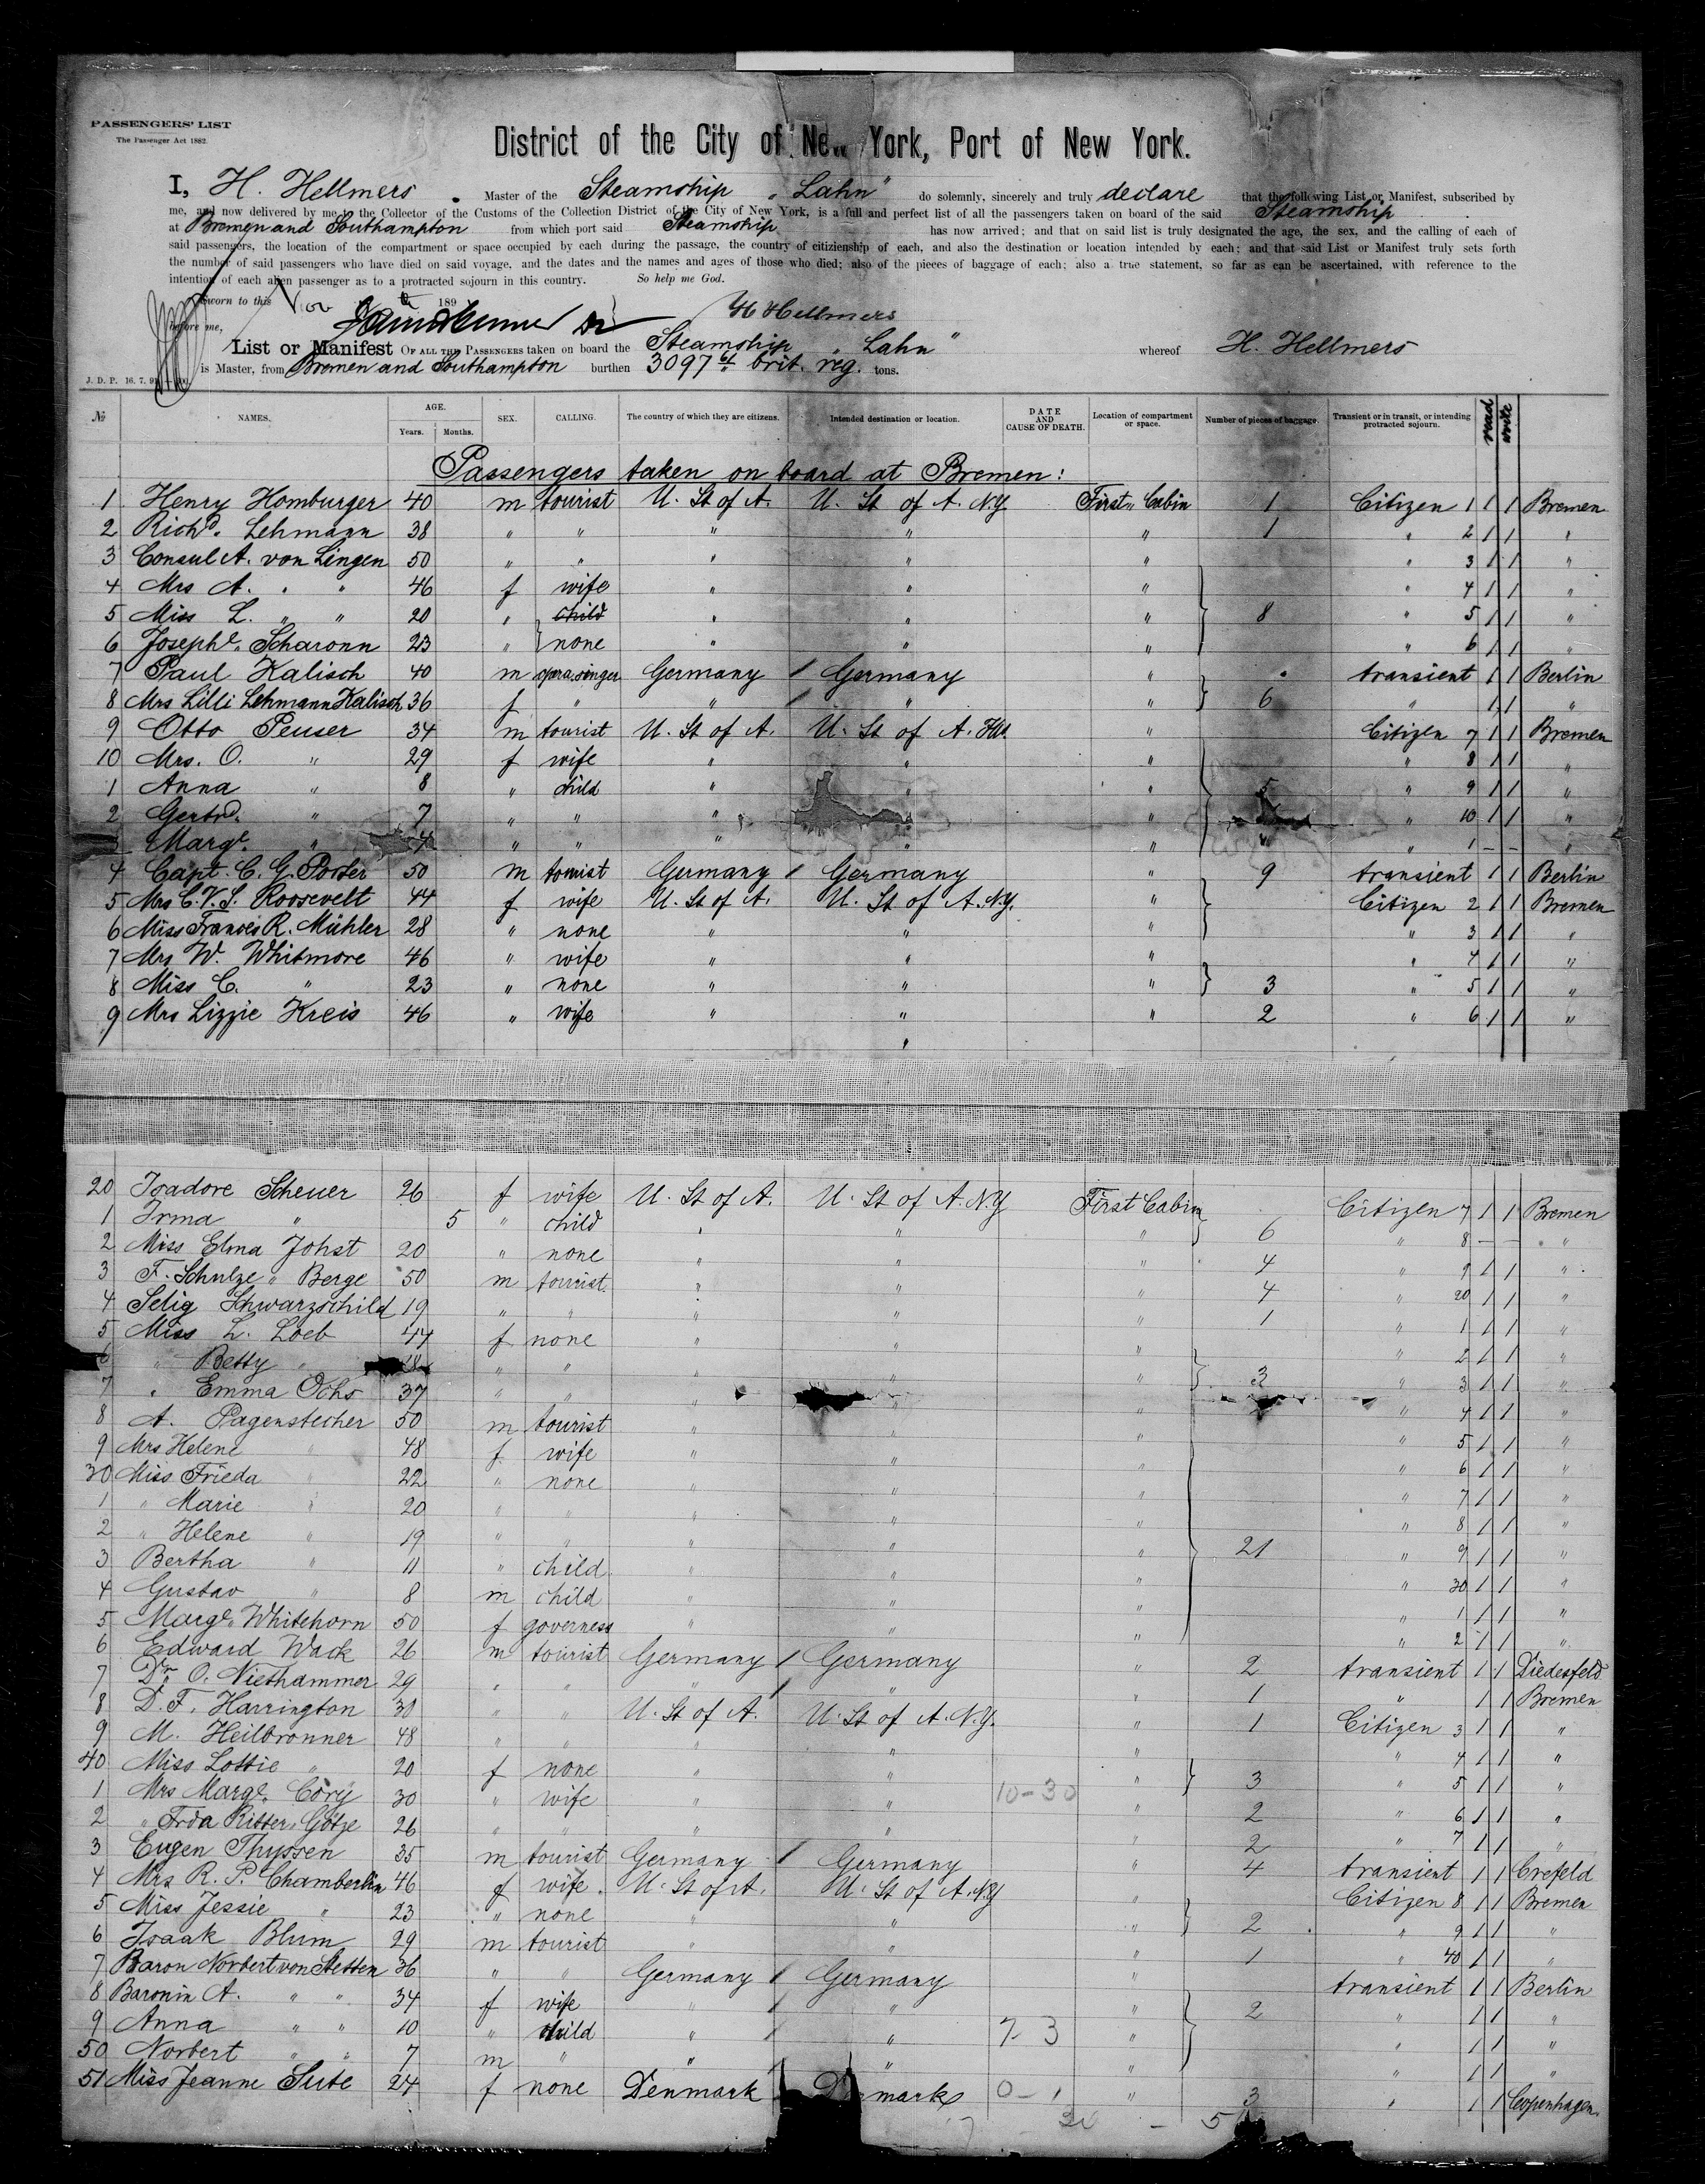 PASSENGERS' LIST
The Passenger Act 1882.
District of the City of New York, Port of New York.
I, H. Hellmers Master of the Steamship „Lahn" do solemnly, sincerely and truly declare that the following List or Manifest, subscribed by
me, and now delivered by me to the Collector of the Customs of the Collection District of the City of New York, is a full and perfect list of all the passengers taken on board of the said Steamship
at Bremen and Southampton from which port said Steamship has now arrived; and that on said list is truly designated the age, the sex, and the calling of each of
said passengers, the location of the compartment or space occupied by each during the passage, the country of citizienship of each, and also the destination or location intended by each; and that said List or Manifest truly sets forth
the number of said passengers who have died on said voyage, and the dates and the names and ages of those who died; also of the pieces of baggage of each; also a true statement, so far as can be ascertained, with reference to the
intention of each alien passenger as to a protracted sojourn in this country. So help me God.
Sworn to this Nov 189
before me, H Hellmers
List or Manifest OF ALL THE PASSENGERS taken on board the Steamship „Lahn" whereof H. Hellmers
is Master, from Bremen and Southampton burthen 3097 61 brit. reg. tons.
J. D. P. 16. 7. 9
№ NAMES. AGE. Years. Months. SEX. CALLING. The country of which they are citizens. Intended destination or location. DATE AND CAUSE OF DEATH. Location of compartment or space. Number of pieces of baggage. Transient or in transit, or intending protracted sojourn. read write
Passengers taken on board at Bremen:
1 Henry Homburger 40 m tourist U. St of A. U. St of A. N.Y. First Cabin 1 Citizen 1 1 1 Bremen
2 Richd. Lehmann 38 " " " " " 1 " 2 1 1 "
3 Consul A. von Lingen 50 " " " " " " 3 1 1 "
4 Mrs A. " " 46 f wife " " " " 4 1 1 "
5 Miss L. " " 20 " child " " " 8 " 5 1 1 "
6 Josephe. Scharonn 23 " none " " " " 6 1 1 "
7 Paul Kalisch 40 m opera singer Germany / Germany " transient 1 1 Berlin
8 Mrs Lilli Lehmann Kalisch 36 f " " / " " 6 " 1 1 "
9 Otto Peuser 34 m tourist U. St of A. U. St of A. " Citizen 7 1 1 Bremen
10 Mrs. O. " 29 f wife " " " " 8 1 1 "
1 Anna " 8 " child " " " 5 " 9 1 1 "
2 Gertrd. " 7 " " " " " " 10 1 1 "
3 Marge. " 4 " " " " " " 1 - - "
4 Capt. C. G. Porter 50 m tourist Germany / Germany " 9 transient 1 1 Berlin
5 Mrs C. V. S. Roosevelt 44 f wife U. St of A. U. St of A. N.Y. " Citizen 2 1 1 Bremen
6 Miss Francis R. Mühler 28 " none " " " " 3 1 1 "
7 Mrs W. Whitmore 46 " wife " " " " 4 1 1 "
8 Miss C. " 23 " none " " " 3 " 5 1 1 "
9 Mrs Lizzie Kreis 46 " wife " " " 2 " 6 1 1 "
20 Isadore Scheuer 26 f wife U. St of A. U. St of A. N.Y First Cabin Citizen 7 1 1 Bremen
1 Irma " 5 " child " " " 6 " 8 - - "
2 Miss Elma Johst 20 " none " " " 4 " 9 1 1 "
3 F. Schulze " Berge 50 m tourist " " " 4 " 20 1 1 "
4 Selig Schwarzschild 19 " " " " " 1 " 1 1 1 "
5 Miss L. Loeb 47 f none " " " " 2 1 1 "
6 " Betty " " " " " " 3 " 3 1 1 "
7 " Emma Ochs 37 " " " " " " 4 1 1 "
8 A. Pagenstecher 50 m tourist " " " " 5 1 1 "
9 Mrs Helene " 48 f wife " " " " 6 1 1 "
30 Miss Frieda " 22 " none " " " " 7 1 1 "
1 " Marie " 20 " " " " " " 8 1 1 "
2 " Helene " 19 " " " " " 21 " 9 1 1 "
3 Bertha " 11 " child " " " " 30 1 1 "
4 Gustav " 8 m child " " " " 1 1 1 "
5 Marge. Whitehorn 50 f governess " " " " 2 1 1 "
6 Edward Wack 26 m tourist Germany / Germany " 2 transient 1 1 Diedesfeld
7 Dr. O. Niethammer 29 " " " / " " 1 " 1 1 Bremen
8 D. F. Harrington 30 " " U. St of A. U. St of A. N.Y. " 1 Citizen 3 1 1 "
9 M. Heilbronner 48 " " " " " " 4 1 1 "
40 Miss Lottie " 20 f none " " " 3 " 5 1 1 "
1 Mrs Marge. Cory 30 " wife " " 10-30 " 2 " 6 1 1 "
2 " Frda Ritter-Götze 26 " " " " " 2 " 7 1 1 "
3 Eugen Thyssen 35 m tourist Germany / Germany " 4 transient 1 1 Crefeld
4 Mrs R. P. Chamberlin 46 f wife U. St of A. U. St of A. N.Y " Citizen 8 1 1 Bremen
5 Miss Jessie " 23 " none " " " 2 " 9 1 1 "
6 Isaak Blum 29 m tourist " " " 1 " 40 1 1 "
7 Baron Norbert von Stetten 36 " " Germany / Germany " transient 1 1 Berlin
8 Baronin A. " " 34 f wife " / " " 2 " 1 1 "
9 Anna " " 10 " child " / " 7-3 " " 1 1 "
50 Norbert " " 7 m " " " " " 1 1 "
51 Miss Jeanne Sute 24 f none Denmark Denmark 0-1 " 3 " 1 1 Copenhagen.
30 - 5